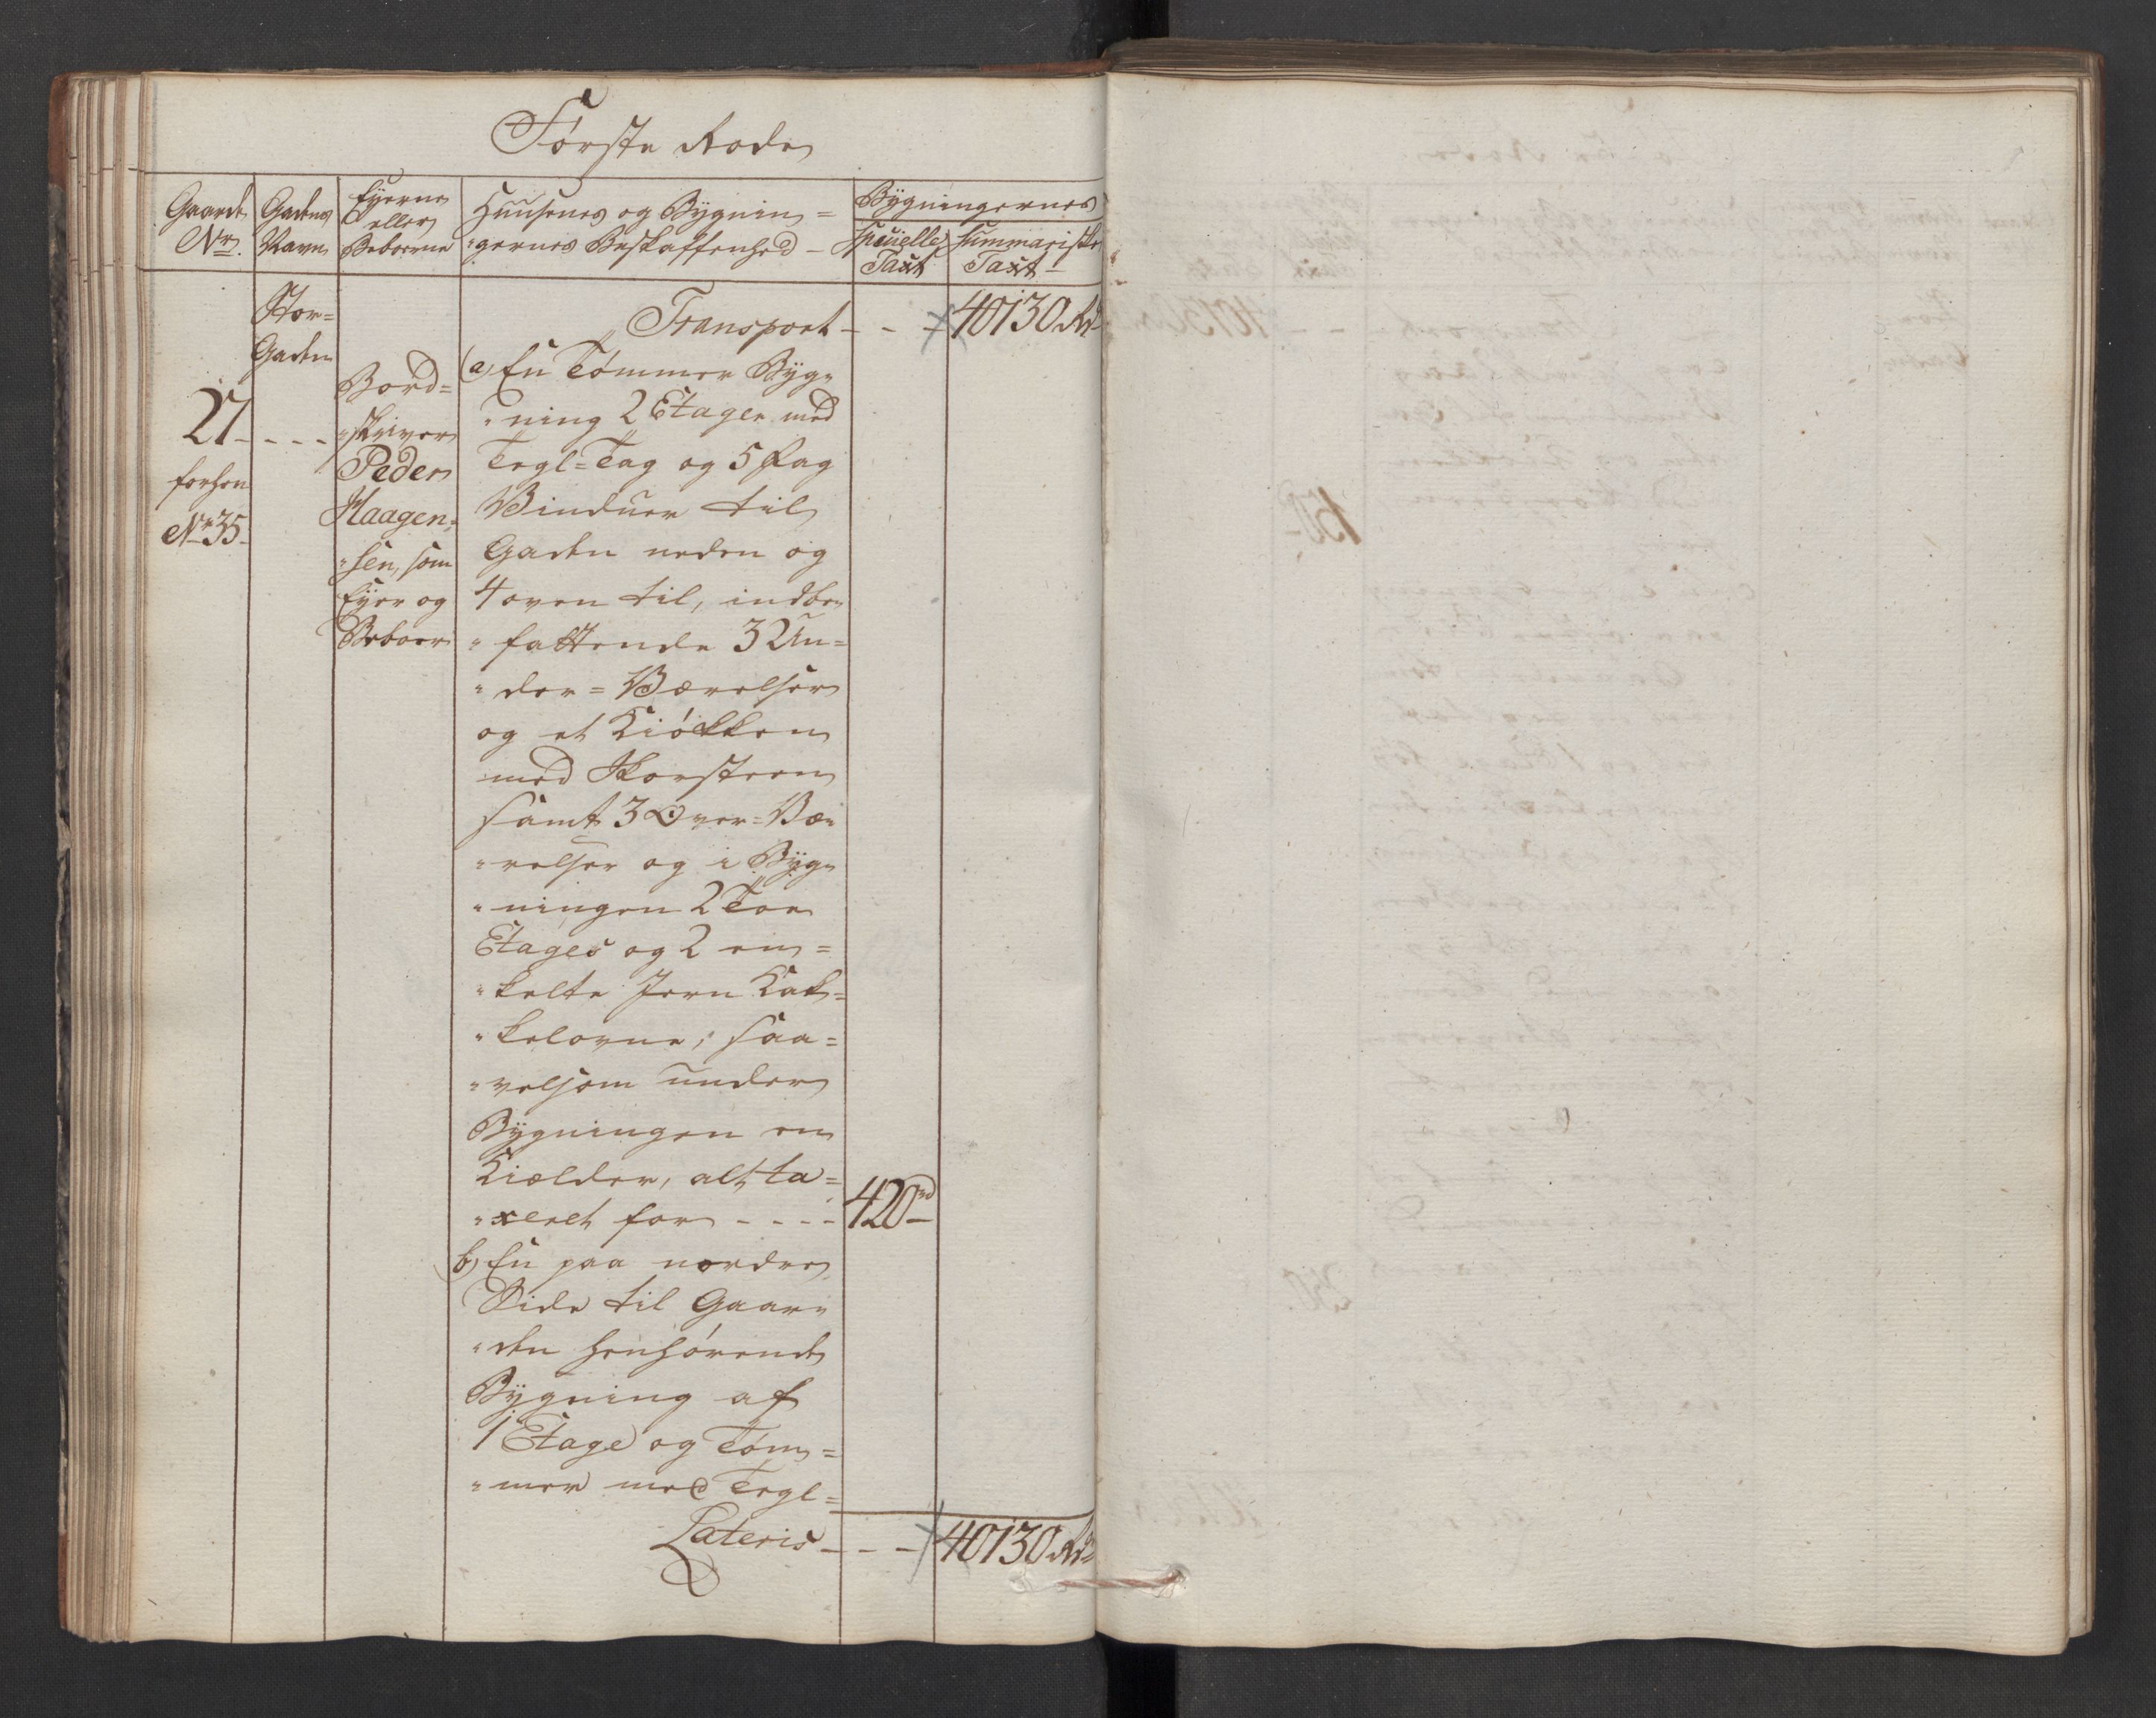 Første Rode
Gaards Nr.
Gadens Navn
Eyerne eller Beboerne
Huusenes og Bygnin=
"gernes Beskaffenhed -
Bygningernes
Specielle Taxt
Summariske Taxt
Stor=
Gaden
27 - - - -
forhen
Nr 35
Bord=
"skriver
Peder
Haagen=
"sen, som
Eyer og
Beboer
Transport - - - 40130 Rd
a) En Tømmer Byg=
"ning 2 Etager med
Tegl=Tag og 5 Fag
Vinduer til
Gaden neden og
4 oven til, indbe=
"fattende 3 Un=
"der=Værelser
og et Kiøkken
med Skorsteen
samt 3 Over=Væ=
"relser og i Byg=
"ningen 2 Toe
Etages og 2 en=
"kelte Jern Kak=
"kelovne; saa=
"velsom under
Bygningen en
Kielder, alt ta=
"xeret for - - - - 420 rd
b) En paa nordre
Side til Gaar=
"den henhørende
Bygning af
1 Etage og Tøm=
"mer med Tegl=
Lateris - - - 40130 Rd